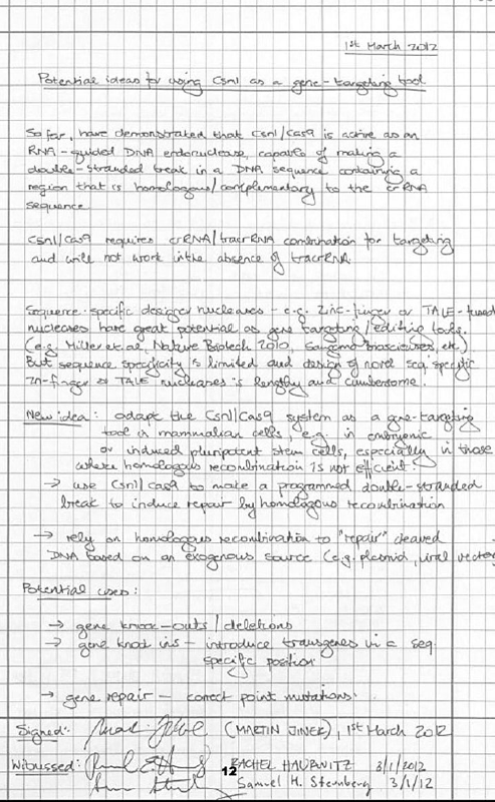 1st March 2012
Potential ideas for using Csn1 as a gene-targeting tool
So far, have demonstrated that Csn1/Cas9 is active as an
RNA-guided DNA endonuclease, capable of making a
double-stranded break in a DNA sequence containing a
region that is homologous/complimentary to the crRNA
sequence
Csn1/Cas9 requires crRNA/tracrRNA combination for targeting
and will not work in the absence of tracrRNA
Sequence-specific designer nucleases - e.g. Zinc-finger or TALE-fused
nucleases have great potential as gene targeting/editing tools.
(e.g. Miller et al, Nature Biotech 2010, Sangamo Biosciences, etc.)
But sequence specificity is limited and design of novel seq. specific
Zn-finger or TALE nucleases is lengthy and cumbersome.
New idea: adapt the Csn1/Cas9 system as a gene-targeting
tool in mammalian cells, e.g. in embryonic
or induced pluripotent stem cells, especially in those
where homologous recombination is not efficient.
→ use Csn1/Cas9 to make a programmed double-stranded
break to induce repair by homologous recombination
→ rely on homologous recombination to "repair" cleaved
DNA based on an exogenous source (e.g. plasmid, viral vector
Potential uses:
→ gene knock-outs/deletions
→ gene knock ins - introduce transgenes in a seq.
specific position
→ gene repair - correct point mutations.
Signed: (MARTIN JINEK), 1st March 2012
Witnessed: RACHEL HAURWITZ 3/1/2012
12
Samuel H. Sternberg 3/1/12